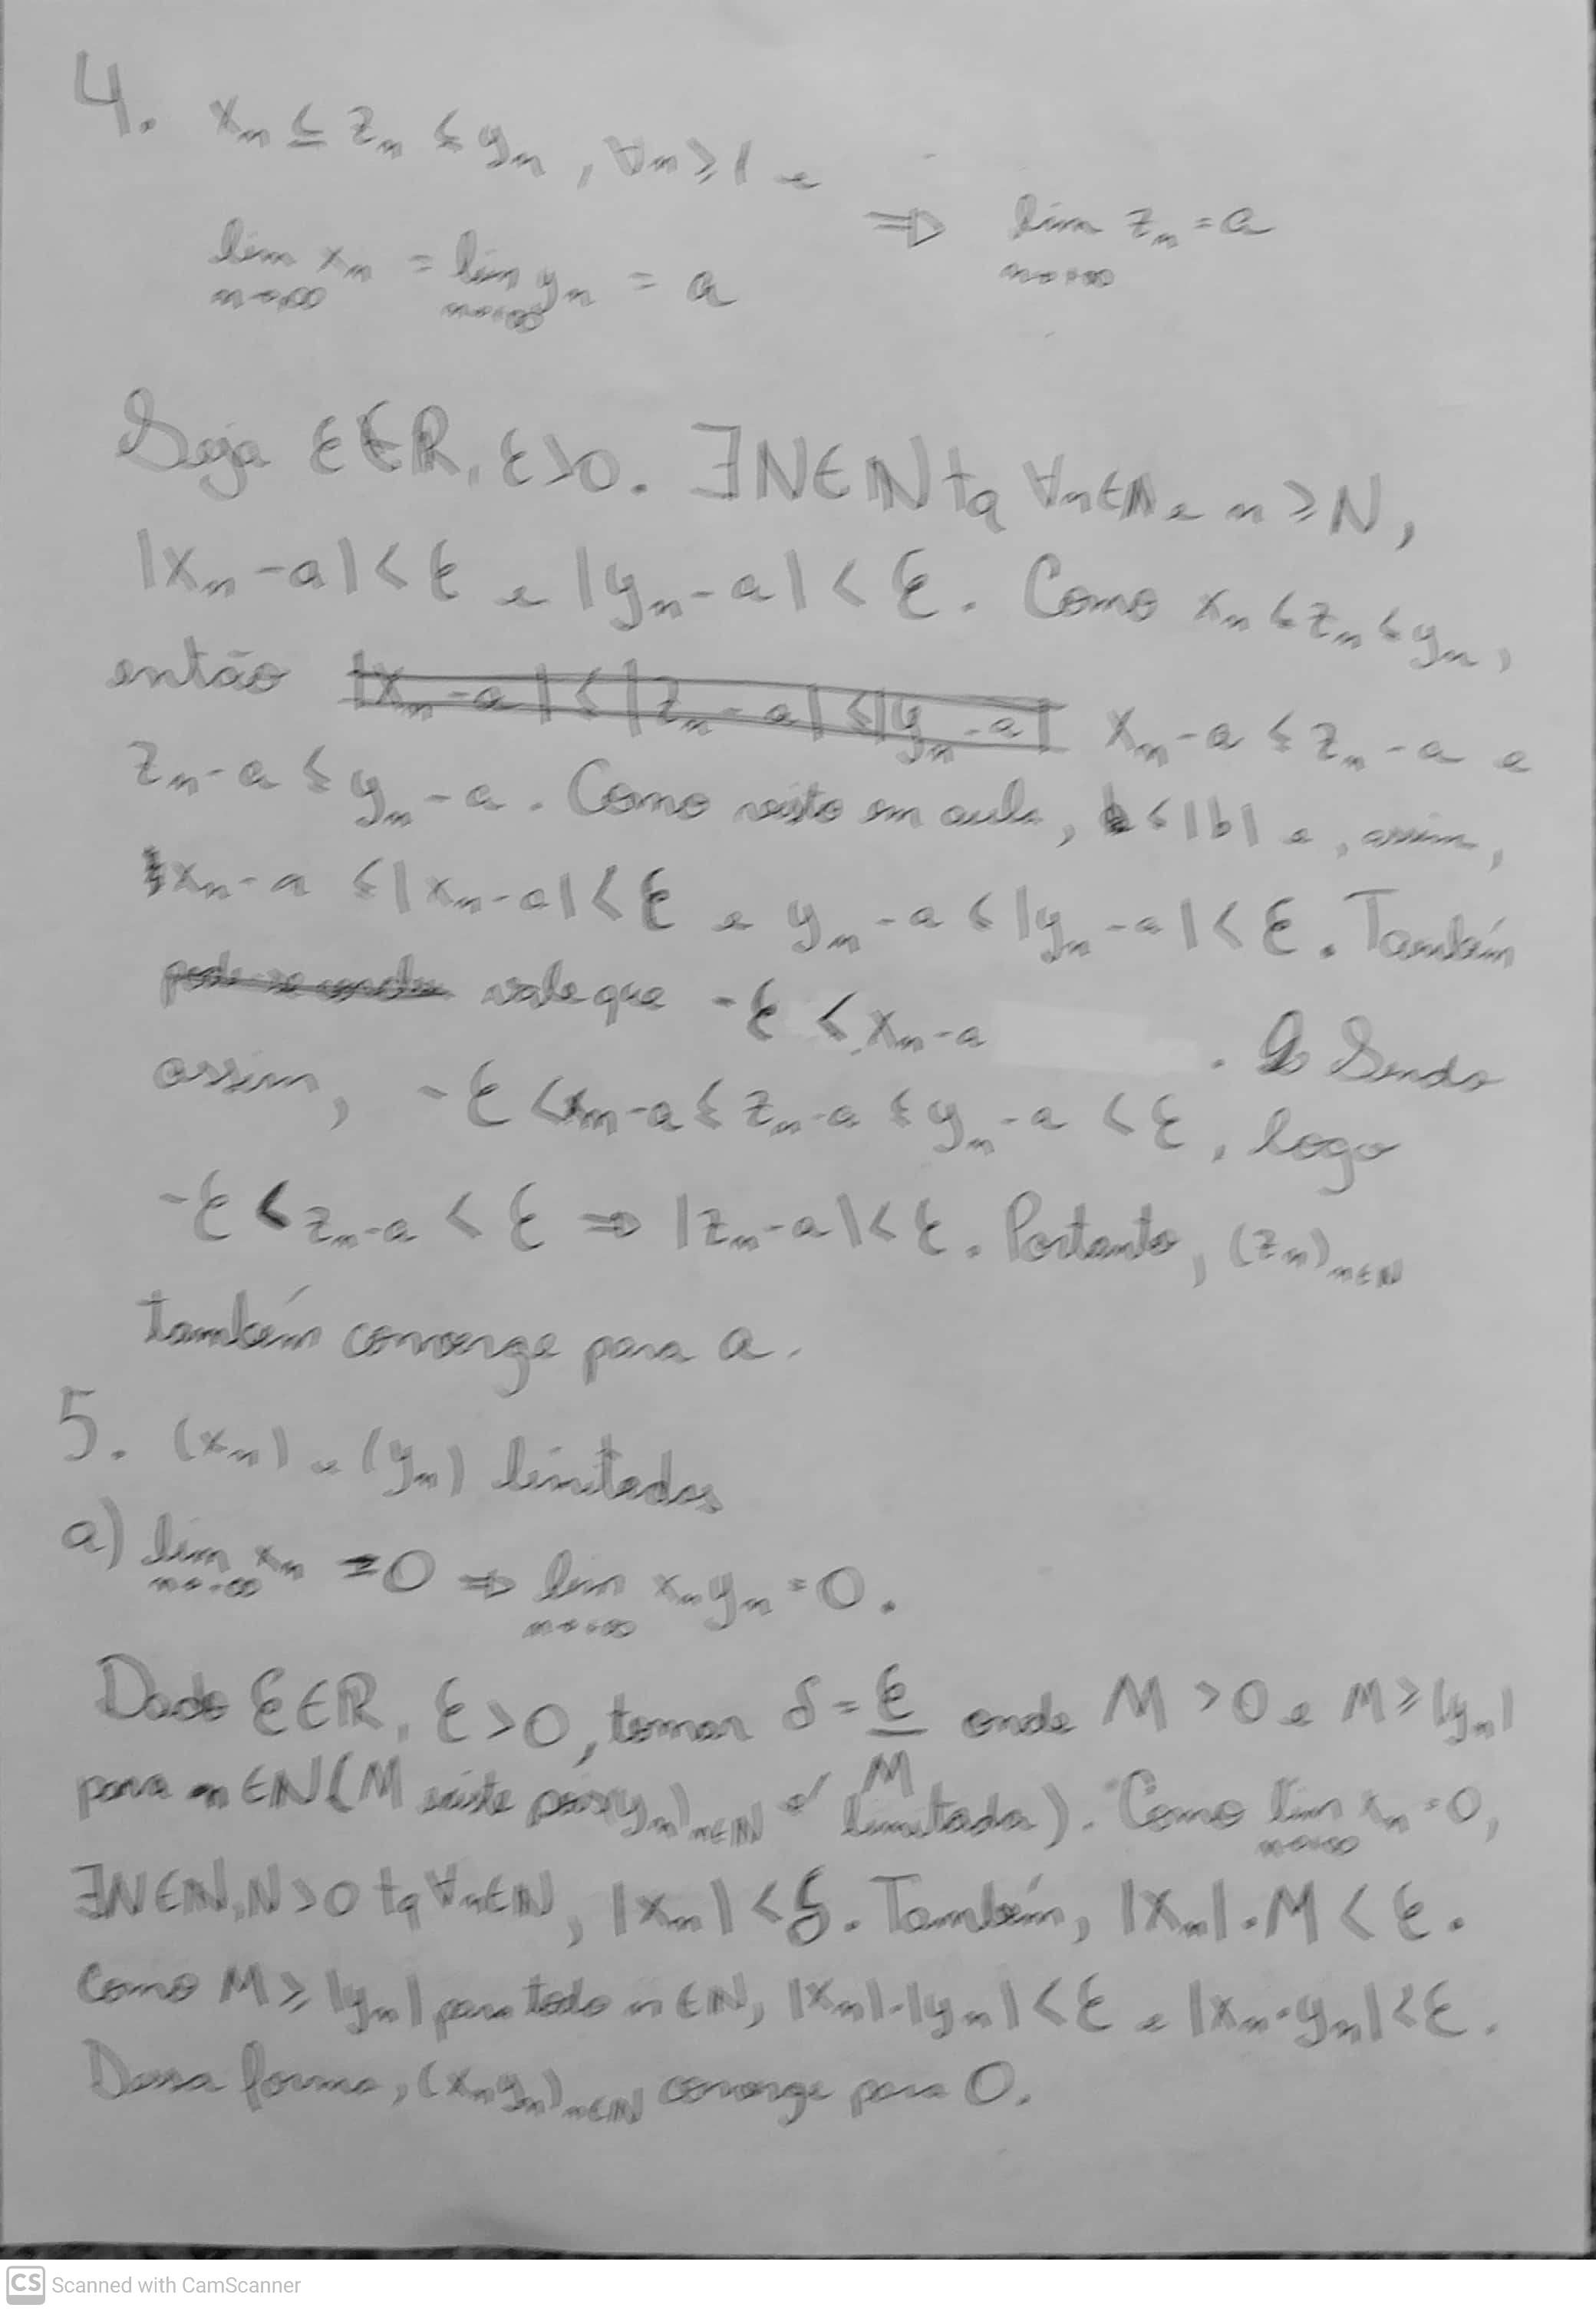 4. xₙ ≤ zₙ ≤ yₙ, ∀n ≥ 1 e
lim xₙ = lim yₙ = a ⇒ lim zₙ = a
n→+∞ n→+∞ n→+∞
Seja ε∈ℝ, ε>0. ∃N∈ℕ tq ∀n∈ℕ e n ≥ N,
|xₙ - a| < ε e |yₙ - a| < ε. Como xₙ ≤ zₙ ≤ yₙ,
então |xₙ - a| ≤ |zₙ - a| ≤ |yₙ - a| xₙ - a ≤ zₙ - a e
zₙ - a ≤ yₙ - a. Como visto em aula, b ≤ |b| e, assim,
xₙ - a ≤ |xₙ - a| < ε e yₙ - a ≤ |yₙ - a| < ε. Também
vale que -ε < xₙ - a . Sendo
assim, -ε < xₙ - a ≤ zₙ - a ≤ yₙ - a < ε, logo
-ε < zₙ - a < ε ⇒ |zₙ - a| < ε. Portanto, (zₙ)ₙ∈ℕ
também converge para a.
5. (xₙ) e (yₙ) limitadas
a) lim xₙ = 0 ⇒ lim xₙyₙ = 0.
n→+∞ n→+∞
Dado ε∈ℝ, ε>0, tomar δ = ε/M onde M > 0 e M ≥ |yₙ|
para n∈ℕ (M existe pois (yₙ)ₙ∈ℕ é limitada). Como lim xₙ = 0,
n→+∞
∃N∈ℕ, N>0 tq ∀n∈ℕ, |xₙ| < δ. Também, |xₙ|·M < ε.
Como M ≥ |yₙ| para todo n∈ℕ, |xₙ|·|yₙ| < ε e |xₙ·yₙ| < ε.
Dessa forma, (xₙyₙ)ₙ∈ℕ converge para 0.
CS Scanned with CamScanner